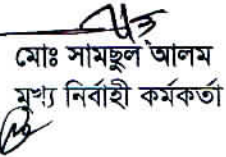 মোঃ সামছুল আলম
মুখ্য নির্বাহী কর্মকর্তা